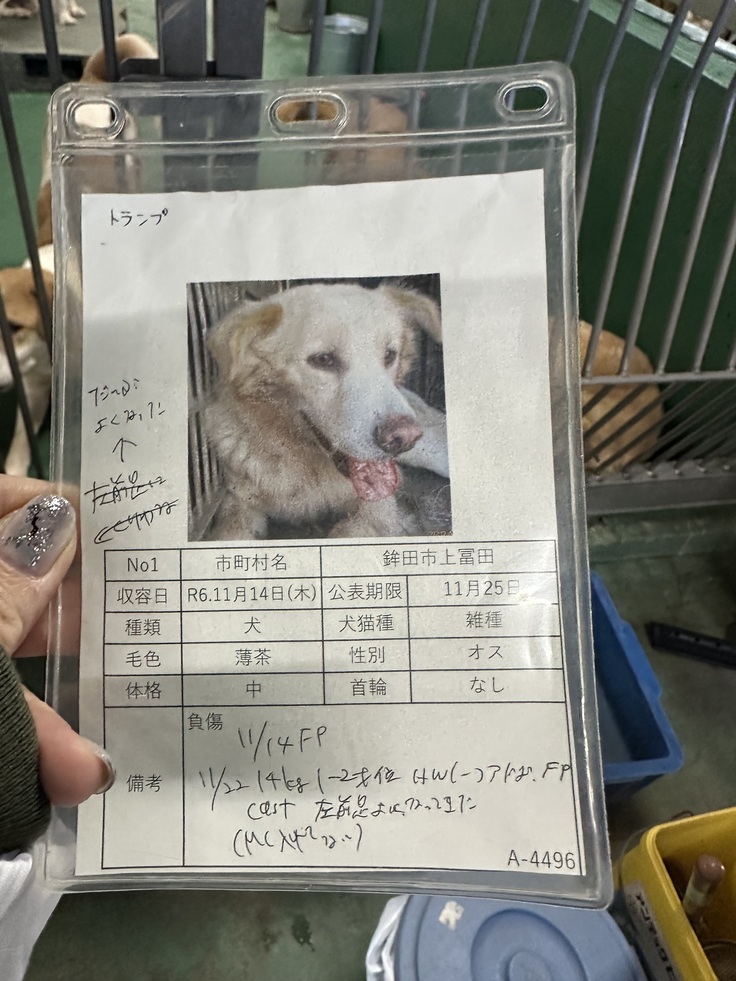 トランプ
だ〜いぶ
よくなった
↑
左前足に
No1 市町村名 鉾田市上冨田
収容日 R6.11月14日(木) 公表期限 11月25日
種類 犬 犬猫種 雑種
毛色 薄茶 性別 オス
体格 中 首輪 なし
備考 負傷
11/14 FP
11/22 14kg 1-2才位 HW(-) アドボ. FP
cast 左前足よくなってきた
A-4496